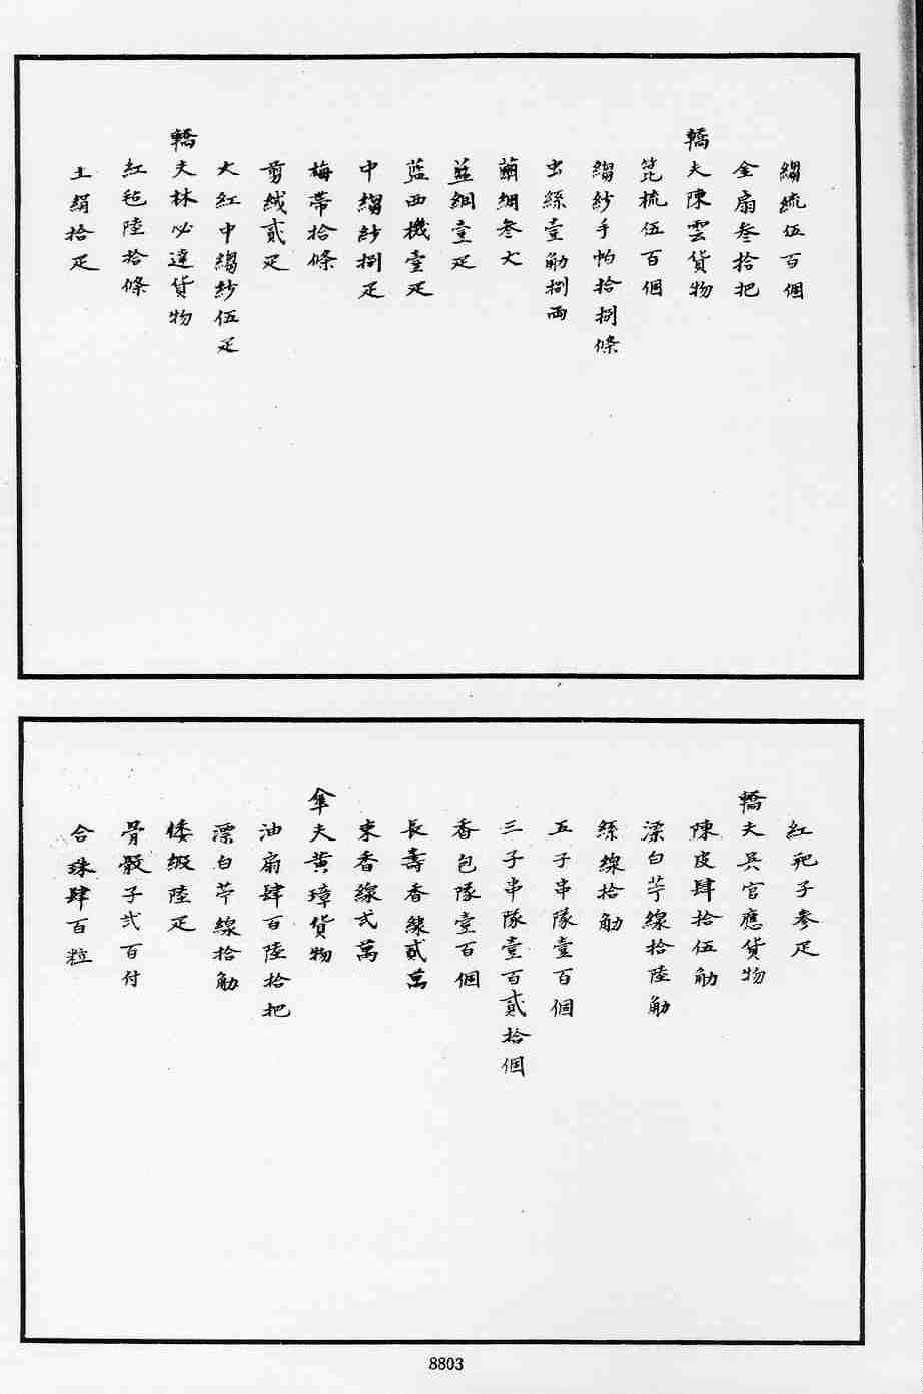 縐綂伍百個
金扇叁拾把
轎夫陳雲貨物
箆梳伍百個
縐紗手帕拾捌條
出絲壹觔捌兩
繭綢叁丈
藍綢壹疋
藍西機壹疋
中縐紗捌疋
梅帶拾條
剪絨貳疋
大紅中縐紗伍疋
轎夫林必達貨物
紅毡陸拾條
土絹拾疋
紅兜子叁疋
轎夫吳官應貨物
陳皮肆拾伍觔
漂白苧線拾陸觔
絲線拾觔
五子串隊壹百個
三子串隊壹百貳拾個
香包隊壹百個
長壽香線貳萬
束香線弍萬
傘夫黃璋貨物
油扇肆百陸拾把
漂白苧線拾觔
倭緞陸疋
骨骰子弍百付
合珠肆百粒
8803